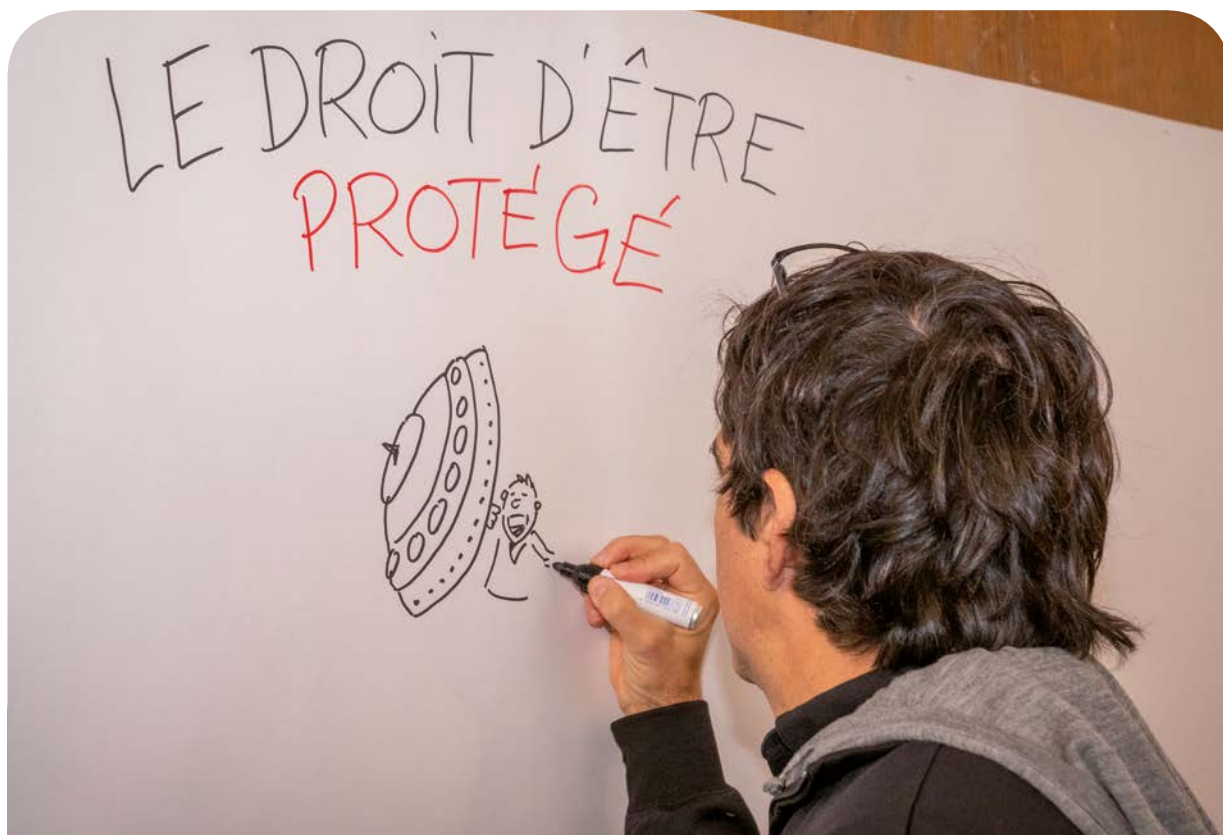 LE DROIT D'ÊTRE
PROTÉGÉ